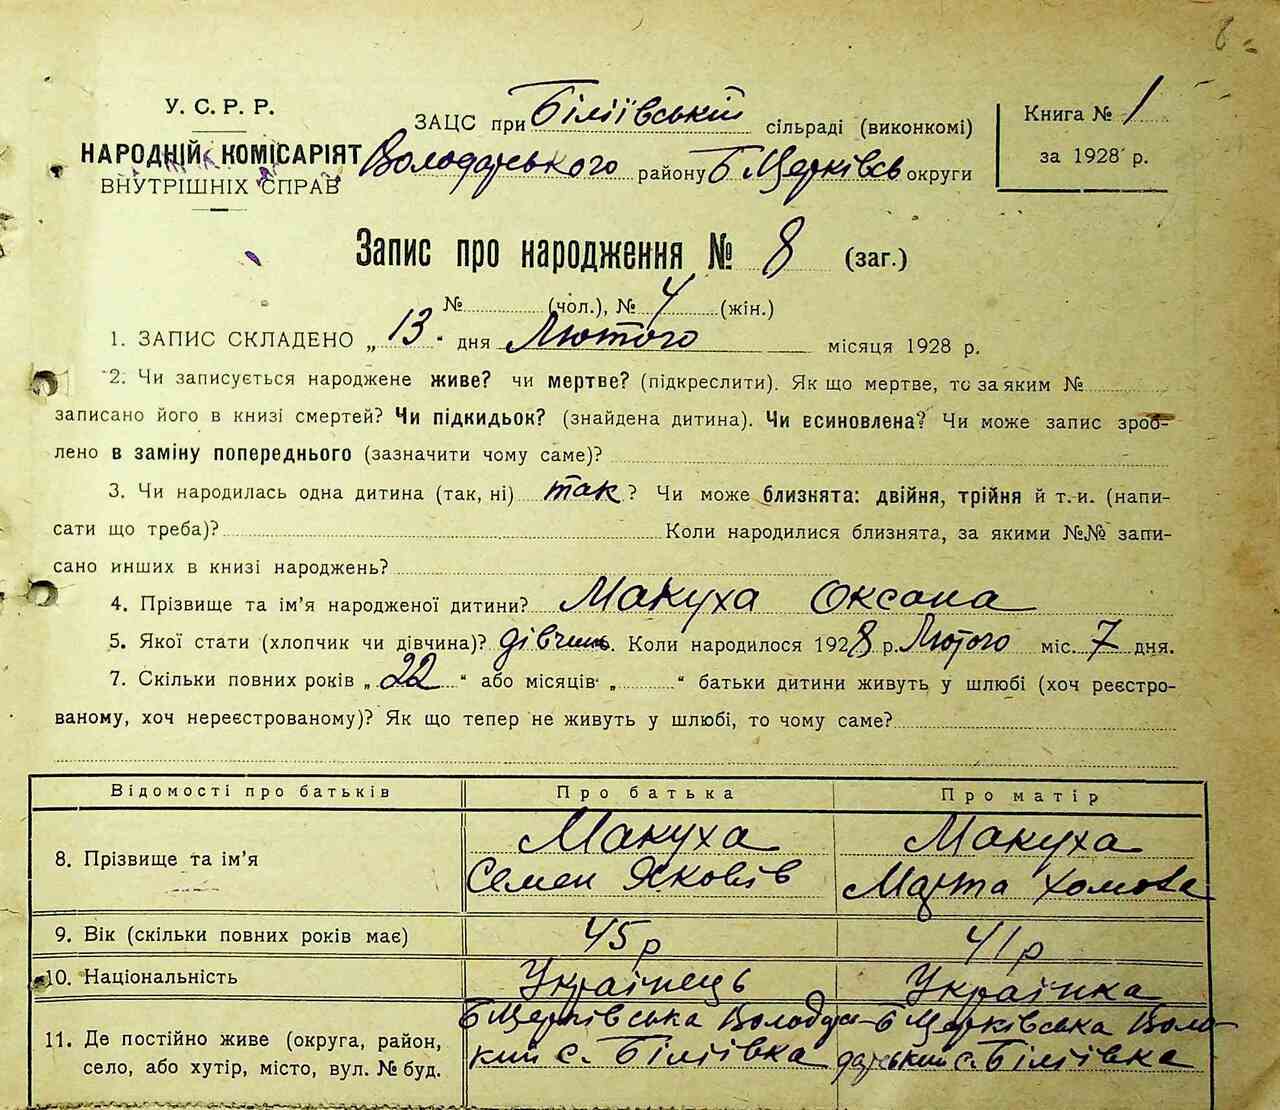 8
У. С. Р. Р.
НАРОДНІЙ КОМІСАРІЯТ
ВНУТРІШНІХ СПРАВ
ЗАЦС при Біліївській сільраді (виконкомі)
Володарського району Б Церківсь округи
Книга № 1
за 1928 р.
Запис про народження № 8 (заг.)
№ (чол.), № 4 (жін.)
1. ЗАПИС СКЛАДЕНО „ 13 " дня Лютого місяця 1928 р.
2. Чи записується народжене живе? чи мертве? (підкреслити). Як що мертве, то за яким №
записано його в книзі смертей? Чи підкидьок? (знайдена дитина). Чи всиновлена? Чи може запис зроб-
лено в заміну попереднього (зазначити чому саме)?
3. Чи народилась одна дитина (так, ні) так ? Чи може близнята: двійня, трійня й т. и. (напи-
сати що треба)? Коли народилися близнята, за якими №№ запи-
сано инших в книзі народжень?
4. Прізвище та ім'я народженої дитини? Макуха Оксана
5. Якої стати (хлопчик чи дівчина)? дівчина. Коли народилося 1928 р. Лютого міс. 7 дня.
7. Скільки повних років „ 22 " або місяців „ " батьки дитини живуть у шлюбі (хоч реєстро-
ваному, хоч нереєстрованому)? Як що тепер не живуть у шлюбі, то чому саме?
Відомості про батьків Про батька Про матір
8. Прізвище та ім'я Макуха Семен Яковів Макуха Марта Хомова
9. Вік (скільки повних років має) 45 р 41 р
10. Національність Українець Українка
11. Де постійно живе (округа, район, Б Церківська Володар- Б Церківська Воло-
село, або хутір, місто, вул. № буд. кий с. Біліївка дарський с. Біліївка